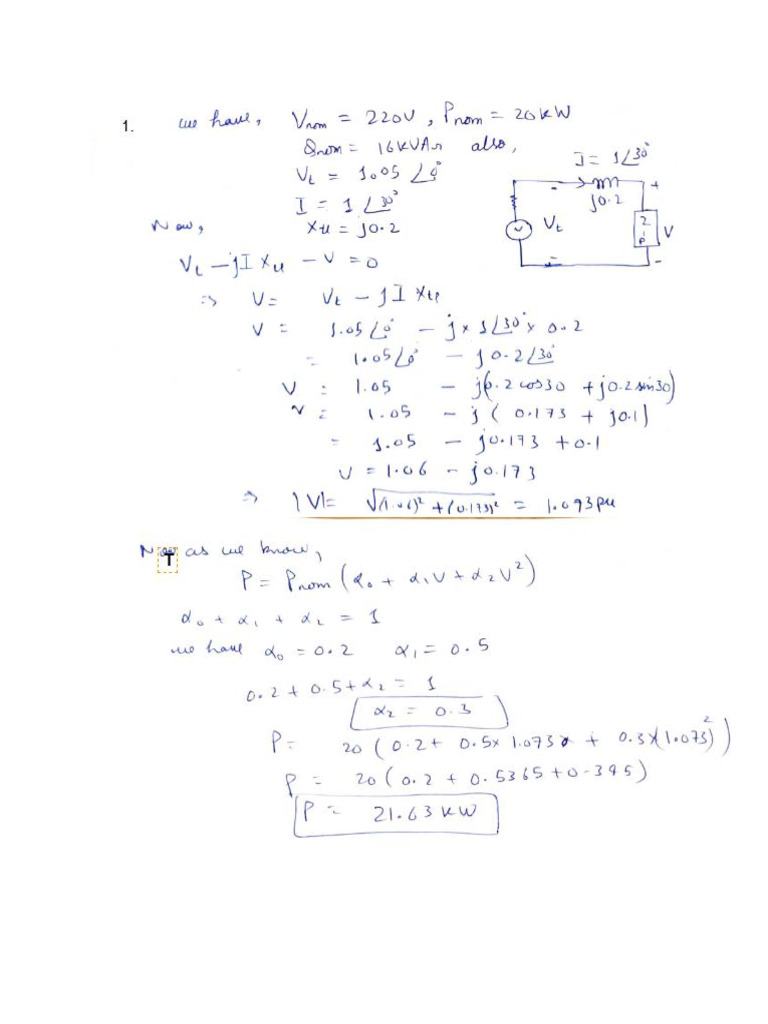 1. we have, Vnom = 220V, Pnom = 20kW
Qnom = 16KVAr also,
I = 1∠30°
Vt = 1.05∠0°
j0.2
I = 1∠30°
Vt
Z
I
P
V
Now, Xtl = j0.2
Vt - jI Xtl - V = 0
=> V = Vt - jI Xtl
V = 1.05∠0° - j × 1∠30° × 0.2
= 1.05∠0° - j0.2∠30°
V = 1.05 - j(0.2 cos30 + j0.2 sin30)
V = 1.05 - j(0.173 + j0.1)
= 1.05 - j0.173 + 0.1
V = 1.06 - j0.173
=> |V| = √(1.06)² + (0.173)² = 1.093pu
Now as we know,
T
P = Pnom (α0 + α1V + α2V²)
α0 + α1 + α2 = 1
we have α0 = 0.2 α1 = 0.5
0.2 + 0.5 + α2 = 1
α2 = 0.3
P = 20 (0.2 + 0.5× 1.073 + 0.3×(1.073)²)
P = 20 (0.2 + 0.5365 + 0.345)
P = 21.63 kW